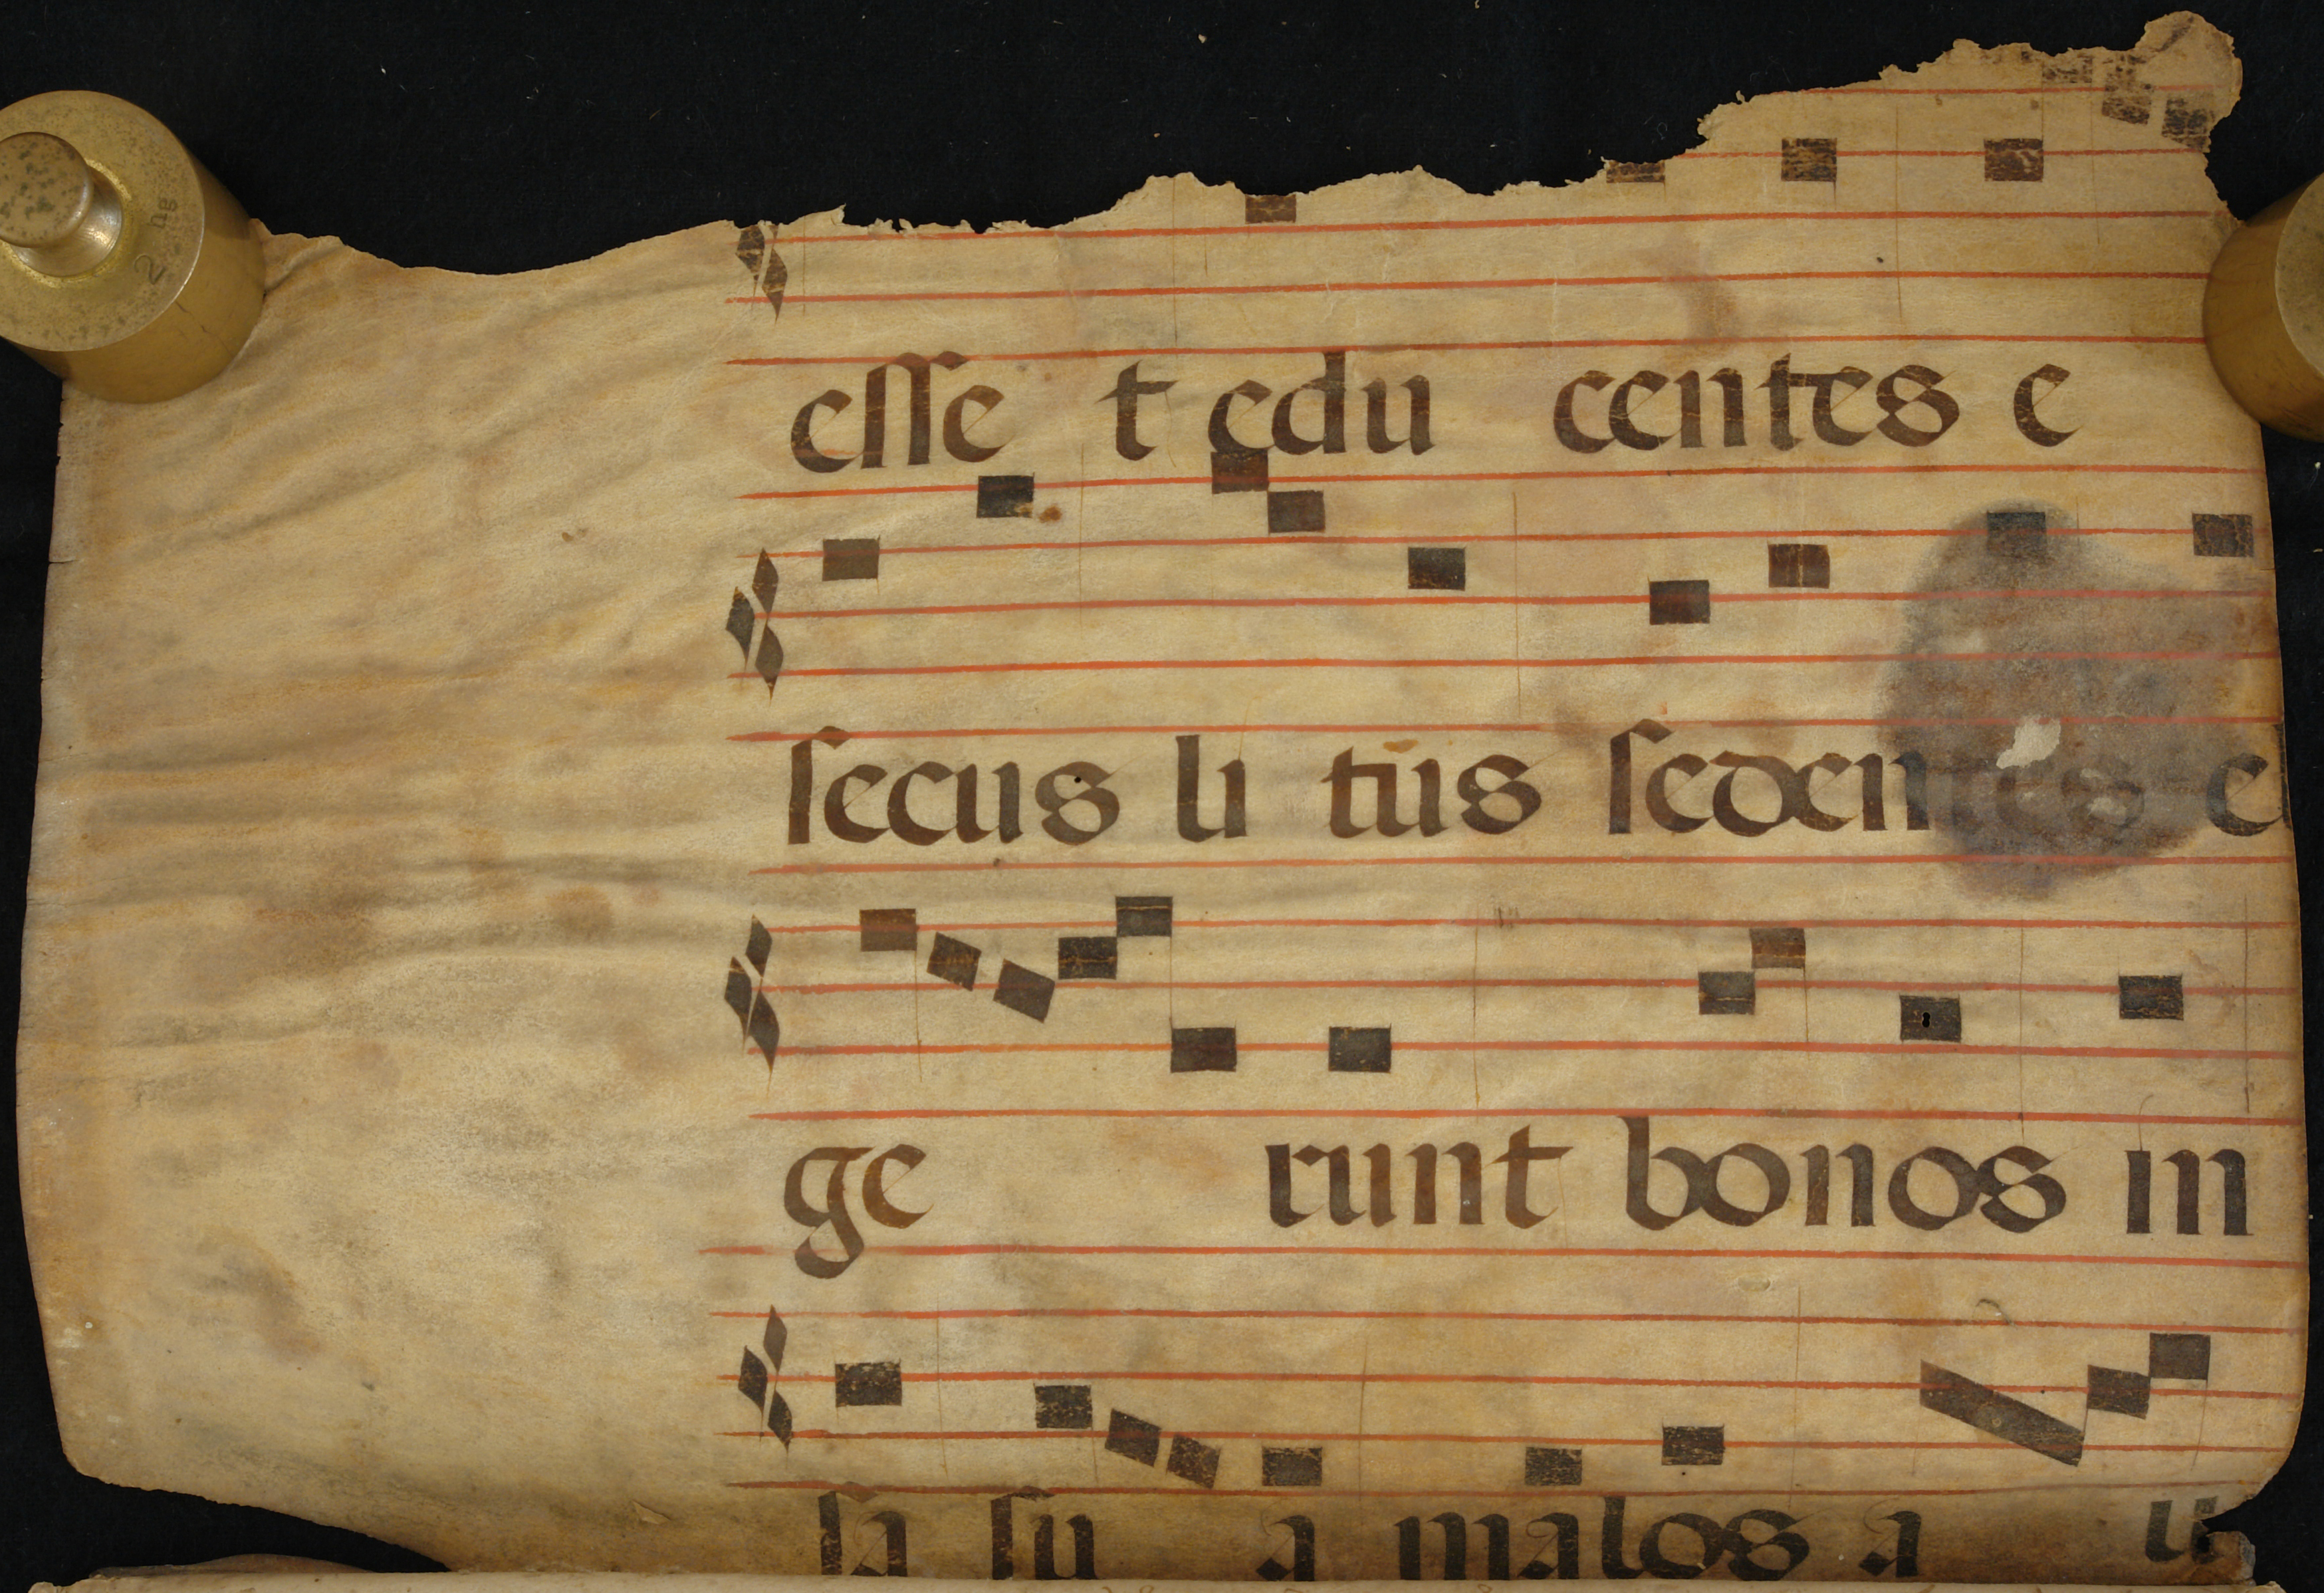 eſſe t edu centes e
ſecus li tus ſedentes el
ge runt bonos in
ſa ſu a malos a u